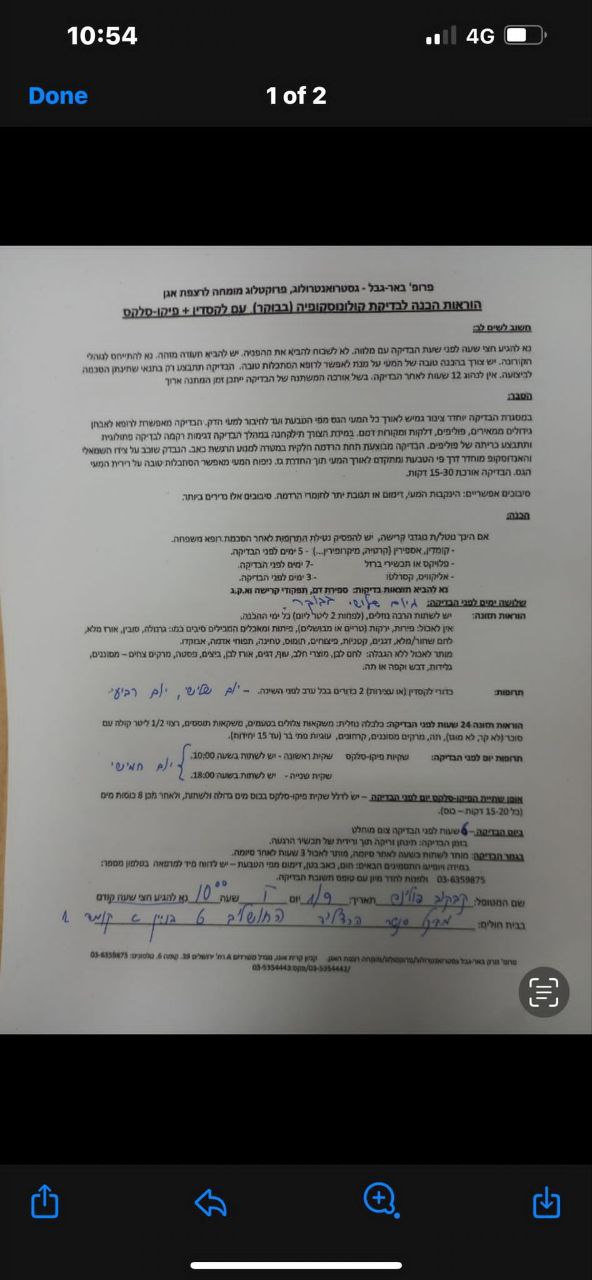 10:54
4G
Done
1 of 2
פרופ' באר-גבל - גסטרואנטרולוג, פרוקטלוג מומחה לרצפת אגן
הוראות הכנה לבדיקת קולונוסקופיה (בבוקר) עם לקסדין + פיקו-סלקס
חשוב לשים לב:
נא להגיע חצי שעה לפני שעת הבדיקה עם מלווה. לא לשכוח להביא את ההפניה. יש להביא תעודה מזהה. נא להתייחס לנוהלי
הקורונה. יש צורך בהכנה טובה של המעי על מנת לאפשר לרופא הסתכלות טובה. הבדיקה תתבצע רק בתנאי שתינתן הסכמה
לביצועה. אין לנהוג 12 שעות לאחר הבדיקה. בשל אורכה המשתנה של הבדיקה ייתכן זמן המתנה ארוך
הסבר:
במסגרת הבדיקה יוחדר צינור גמיש לאורך כל המעי הגס מפי הטבעת ועד לחיבור למעי הדק. הבדיקה מאפשרת לרופא לאבחן
גידולים ממאירים, פוליפים, דלקות ומקורות דמם. במידת הצורך תילקחנה במהלך הבדיקה דגימות רקמה לבדיקה פתולוגית
ותתבצע כריתה של פוליפים. הבדיקה מבוצעת תחת הרדמה חלקית במטרה למנוע הרגשת כאב. הנבדק שוכב על צידו השמאלי
והאנדוסקופ מוחדר דרך פי הטבעת ומתקדם לאורך המעי תוך החדרת גז. ניפוח המעי מאפשר הסתכלות טובה על רירית המעי
הגס. הבדיקה אורכת 15-30 דקות.
סיבוכים אפשריים: הינקבות המעי, דימום או תגובת יתר לחומרי הרדמה. סיבוכים אלו נדירים ביותר.
הכנה:
אם הינך נוטל/ת מנגדי קרישה, יש להפסיק נטילת התרופות לאחר הסכמת רופא משפחה.
- קומדין, אספירין (קרטיה, מיקרופירין...) - 5 ימים לפני הבדיקה.
- פלויקס או תכשירי ברזל -7 ימים לפני הבדיקה.
- אליקוויס, קסרלטו - 3 ימים לפני הבדיקה.
נא להביא תוצאות בדיקות: ספירת דם, תפקודי קרישה וא.ק.ג
שלושה ימים לפני הבדיקה: מיום שלישי בבוקר
הוראות תזונה: יש לשתות הרבה נוזלים, (לפחות 2 ליטר ליום) כל ימי ההכנה.
אין לאכול: פירות, ירקות (טריים או מבושלים), פיתות ומאכלים המכילים סיבים כמו: גרנולה, סובין, אורז מלא,
לחם שחור/מלא, דגנים, קטניות, פיצוחים, חומוס, טחינה, תפוחי אדמה, אבוקדו.
מותר לאכול ללא הגבלה: לחם לבן, מוצרי חלב, עוף, דגים, אורז לבן, ביצים, פסטה, מרקים צחים – מסוננים,
גלידות, דבש וקפה או תה.
תרופות: כדורי לקסדין (או עצירות) 2 כדורים בכל ערב לפני השינה. - יום שלישי, יום רביעי
הוראות תזונה 24 שעות לפני הבדיקה: כלכלה נוזלית: משקאות צלולים בטעמים, משקאות תוססים, רצוי 1/2 ליטר קולה עם
סוכר (לא קר, לא מוגז), תה, מרקים מסוננים, קרחונים, עוגיות פתי בר (עד 15 יחידות).
תרופות יום לפני הבדיקה: שקיות פיקו-סלקס שקית ראשונה - יש לשתות בשעה 10:00.
שקית שנייה - יש לשתות בשעה 18:00. יום חמישי
אופן שתיית הפיקו-סלקס יום לפני הבדיקה – יש לדלל שקית פיקו-סלקס בכוס מים גדולה ולשתות, ולאחר מכן 8 כוסות מים
(כל 15-20 דקות – כוס).
ביום הבדיקה – 6 שעות לפני הבדיקה צום מוחלט
בזמן הבדיקה: תינתן זריקה תוך ורידית של תכשיר הרגעה.
בגמר הבדיקה: מותר לשתות כשעה לאחר סיומה, מותר לאכול 3 שעות לאחר סיומה.
במידה ויופיעו התסמינים הבאים: חום, כאב בטן, דימום מפי הטבעת – יש לדווח מיד למרפאה בטלפון מספר:
03-6359875 ולפנות לחדר מיון עם טופס תשובת הבדיקה.
שם המטופל: תאריך: 1/9 יום ו שעה 10:00 נא להגיע חצי שעה קודם
בבית חולים: סנטר הרצליה החושלים 6 בניין קומה